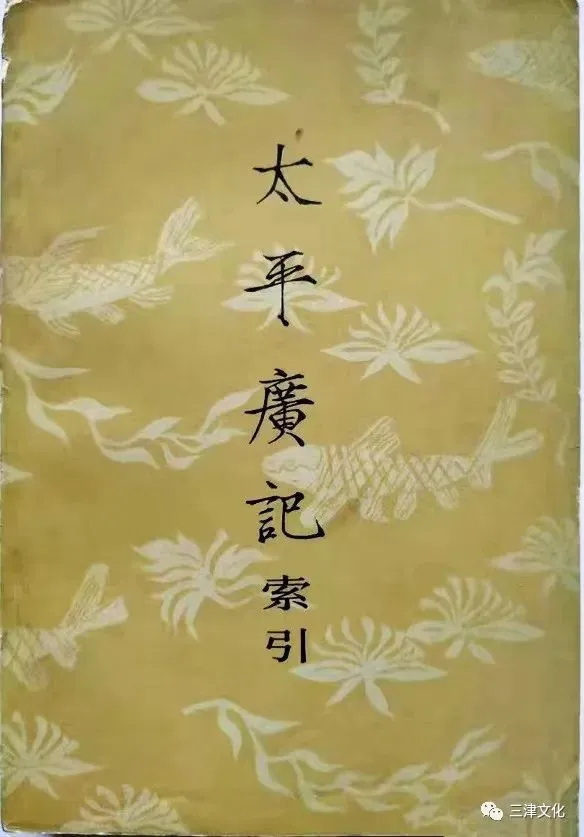 太平廣記索引
三津文化